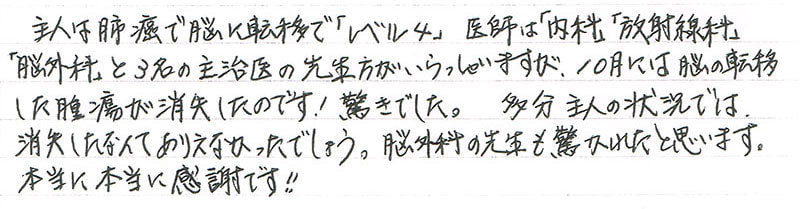 主人は肺癌で脳に転移で「レベル4」 医師は「内科」「放射線科」
「脳外科」と3名の主治医の先生方がいらっしゃいますが、10月には脳の転移
した腫瘍が消失したのです！驚きでした。 多分主人の状況では、
消失したなんてありえなかったでしょう。脳外科の先生も驚かれたと思います。
本当に本当に感謝です!!